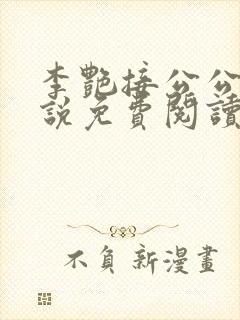 李艷接公公
說免費閱讀
不負新漫畫